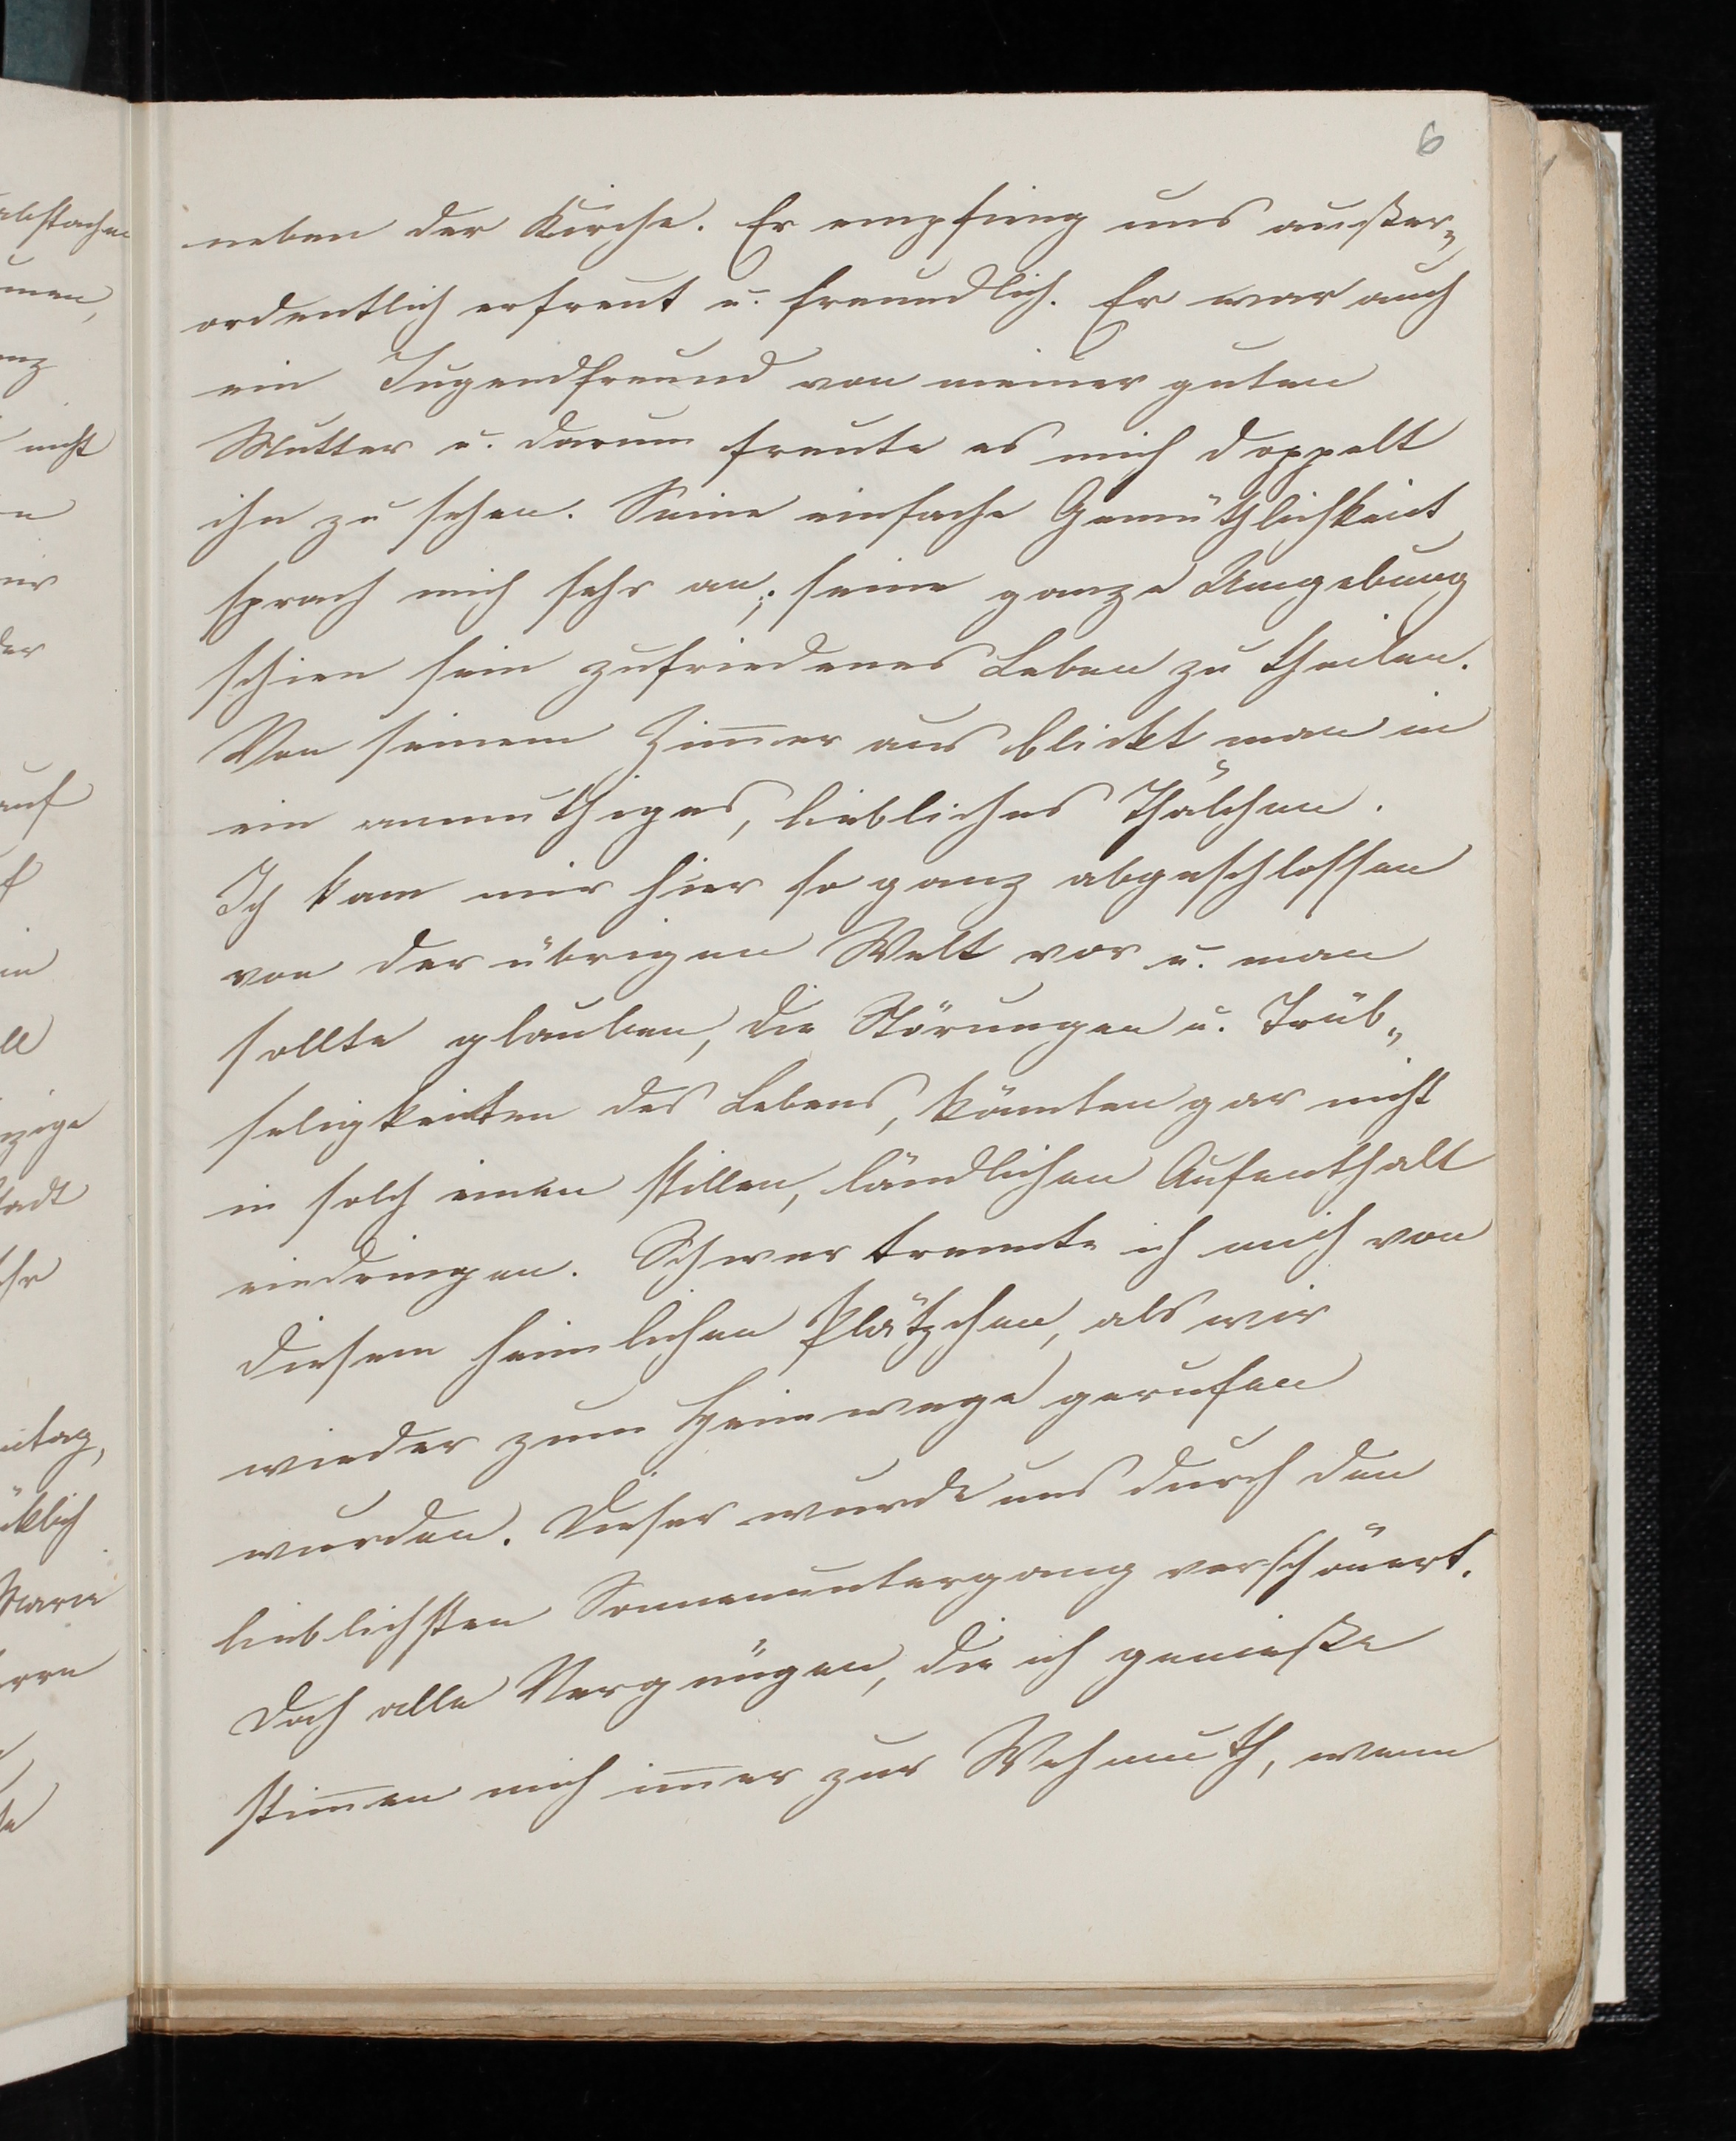 6
neben der Kirche. Er empfieng uns außer„
ordentlich erfreut u. freundlich. Er war auch
ein Jugendfreund von meiner guten
Mutter u. darum freute es mich doppelt
ihn zu sehen. Seine einfache Gemüthlichkeit
sprach mich sehr an; seine ganze Umgebung
schien sein zufriedenes Leben zu theilen.
Von seinem Zim̅er aus blickt man in
ein anmuthiges, liebliches Thälchen.
Ich kam mir hier so ganz abgeschlossen
von der übrigen Welt vor u. man
sollte glauben, die Störungen u. Trüb„
seligkeiten des Lebens, könnten gar nicht
in solch einen stillen, ländlichen Aufenthalt
eindringen. Schwer trennte ich mich von
diesem heimlichen Plätzchen, als wir
wieder zum Heimwege gerufen
wurden. Dieser wurde uns durch den
lieblichsten Sonnenuntergang verschönert.
Doch alle Vergnügen, die ich genieße
stim̅en mich im̅er zur Wehmuth, wenn